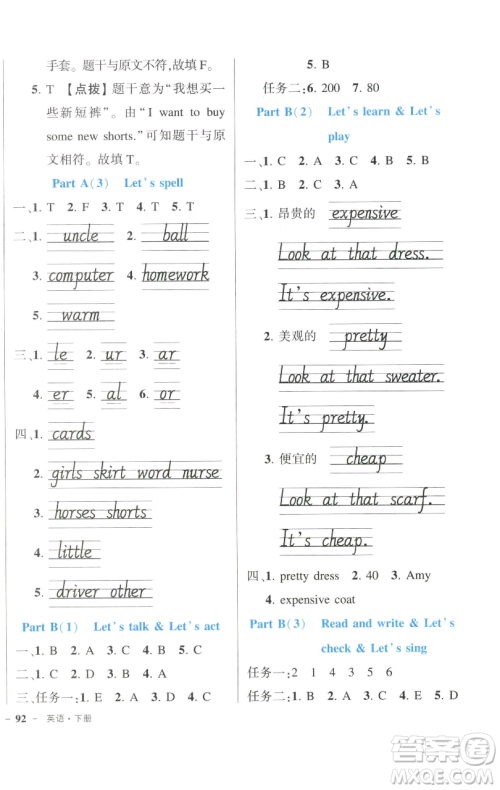 手套。题干与原文不符,故填 F。
5. T 【点拨】题干意为“我想买
一些新短裤”。由“I want to buy
some new shorts.”可知题干与原
文相符。故填 T。
Part A(3) Let's spell
一、1. T 2. F 3. T 4. T 5. T
二、1. uncle 2. ball
3. computer 4. homework
5. warm
三、1. le 2. ur 3. ar
4. er 5. al 6. or
四、1. cards
2. girls skirt word nurse
3. horses shorts
4. little
5. driver other
Part B(1) Let's talk & Let's act
一、1. B 2. A 3. C 4. B 5. B
二、1. C 2. A 3. D 4. B
三、任务一:1. B 2. A 3. A 4. A
92 英语·下册
5. B
任务二:6. 200 7. 80
Part B(2) Let's learn & Let's
play
一、1. C 2. A 3. C 4. B 5. A
二、1. B 2. A 3. B 4. A 5. B
三、1. 昂贵的 expensive
Look at that dress.
It's expensive.
2. 美观的 pretty
Look at that sweater.
It's pretty.
3. 便宜的 cheap
Look at that scarf.
It's cheap.
四、1. pretty dress 2. 40 3. Amy
4. expensive coat
Part B(3) Read and write & Let's
check & Let's sing
任务一:2 1 4 3 5 6
任务二:1. B 2. B 3. A 4. C
答案圈
MXQE.COM